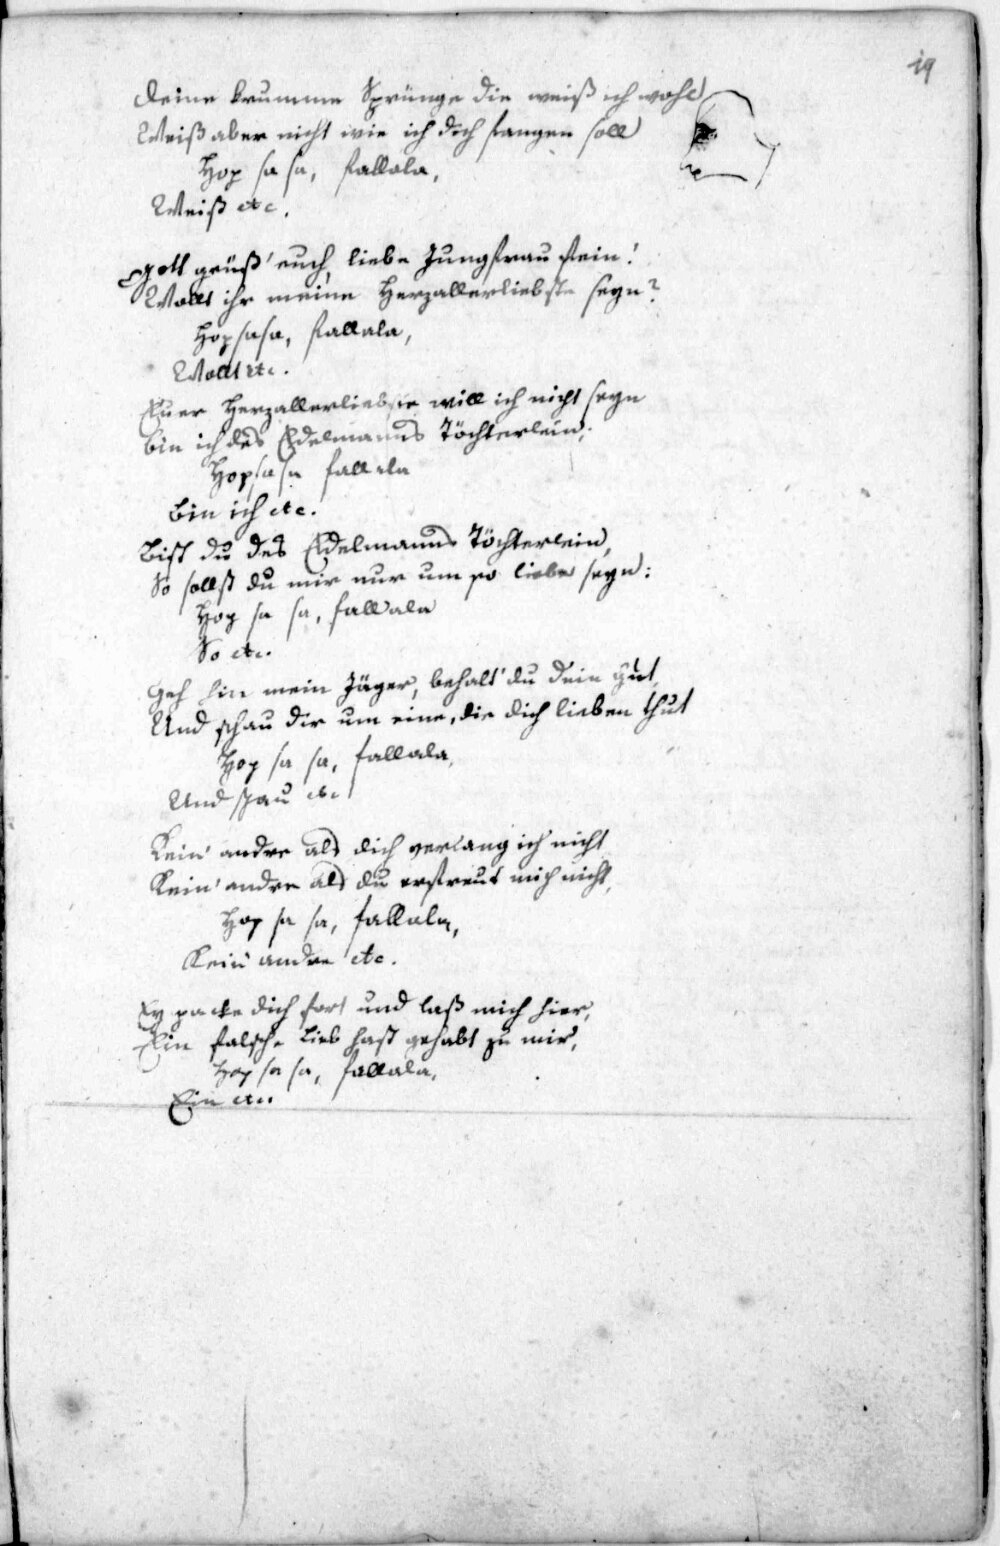 19
Deine krumme Sprünge die weiß ich wohl
Weiß aber nicht wie ich dich fangen soll
Hop sa sa, fallala,
Weiß etc.
Gott grüß' euch, liebe Jungfrau fein!
Wollt ihr meine Herzallerliebste seyn?
Hopsasa, fallala,
Wollt etc.
Euer Herzallerliebste will ich nicht seyn
bin ich des Edelmanns Töchterlein;
Hopsasa fallala
bin ich etc.
Bist du des Edelmanns Töchterlein,
So sollst du mir nur um so lieber seyn:
Hop sa sa, fallala
So etc.
Geh hin mein Jäger, behalt' du dein Gut,
Und schau dir um eine, die dich lieben thut
Hop sa sa, fallala,
Und schau etc
Kein' andre als dich verlang ich nicht
Kein' andre als du erfreut mich nicht,
Hop sa sa, fallala,
Kein' andre etc.
Ey packe dich fort und laß mich hier,
Ein falsche Lieb hast gehabt zu mir,
Hop sa sa, fallala,
Ein etc.